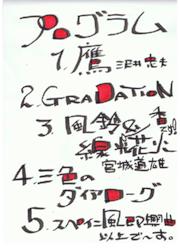 プログラム
1.鷹 三井忠夫
2.GRADATiON
3.風鈴&香ﾃﾞｽ!
線花火
宮城道雄
4.三色の
ダイアローグ
5.スペイン風即興曲
以上で〜す。